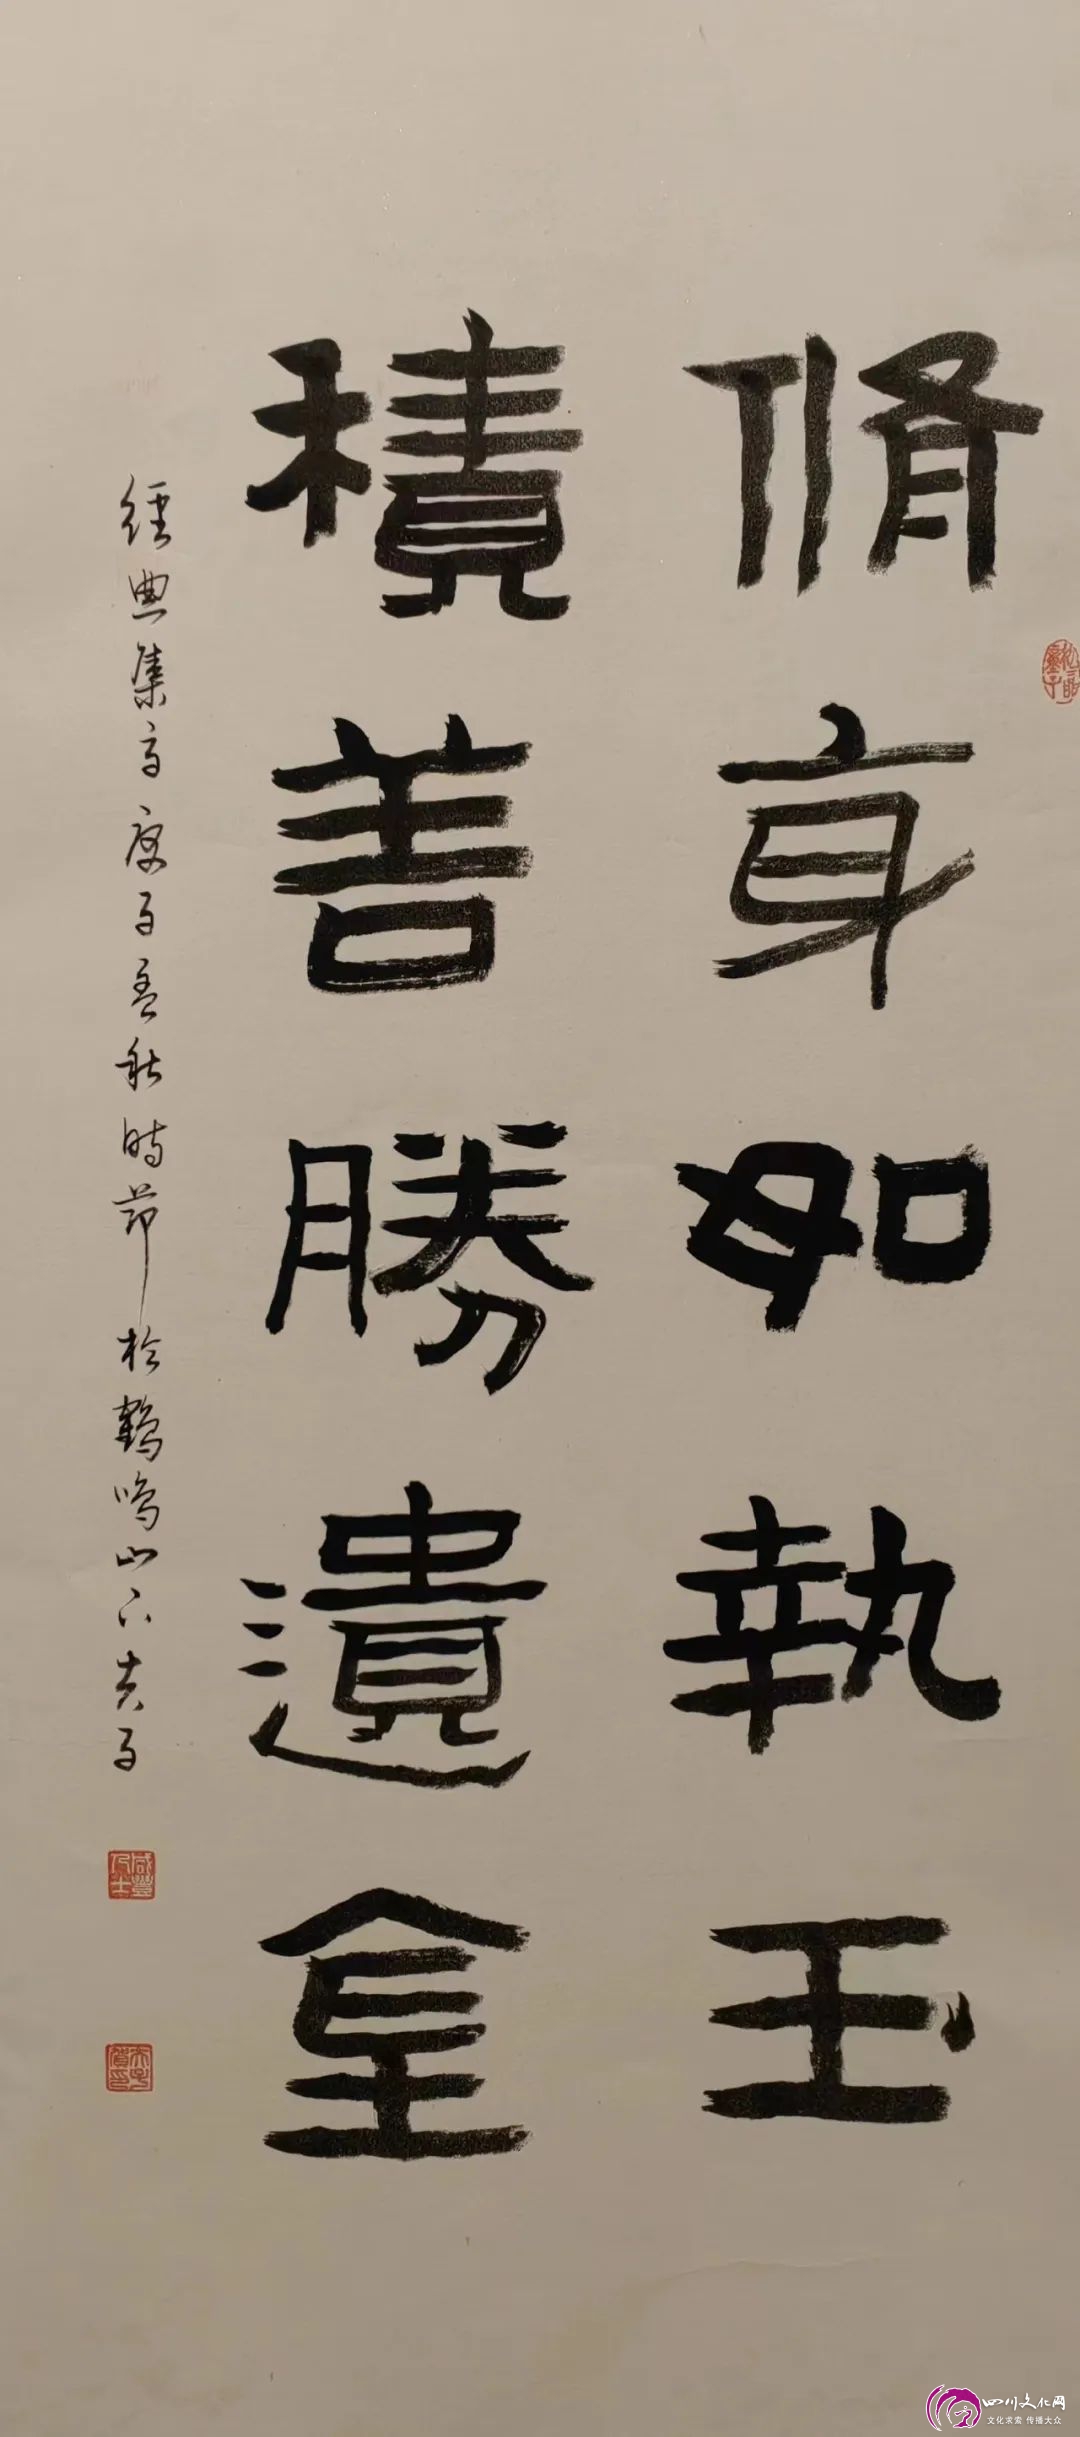 脩身如執玉
積善勝遺金
經典集句庚子孟秋時節於鶴鳴山下夫子
四川文化网
文化求索 传播大众